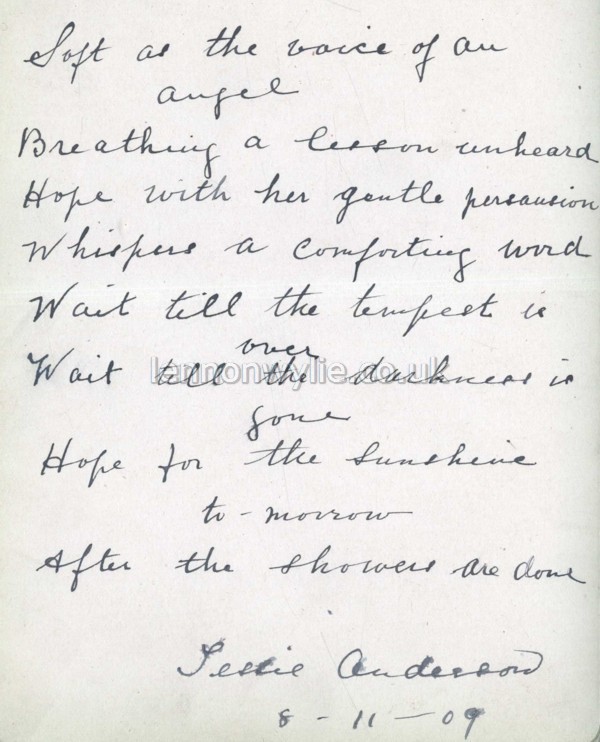 Soft as the voice of an
angel
Breathing a lesson unheard
Hope with her gentle persausion
Whispers a comforting word
Wait till the tempest is
over
Wait till the darkness is
gone
Hope for the sunshine
to-morrow
After the showers are done
Anderson
8-11-09
lennonwylie.co.uk